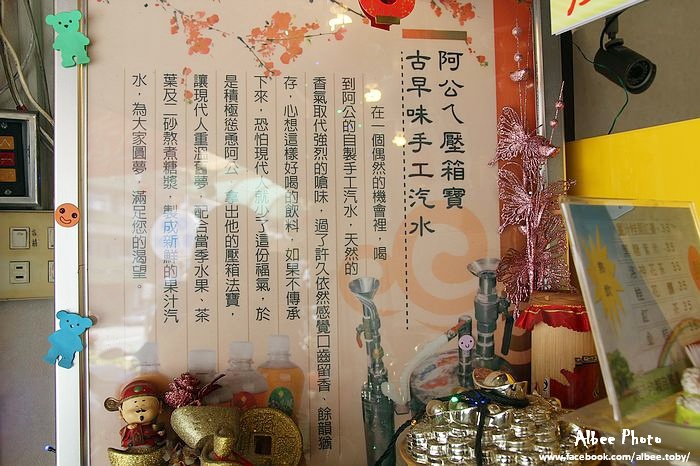 阿公ㄟ壓箱寶
古早味手工汽水
在一個偶然的機會裡，喝
到阿公的自製手工汽水，天然的
香氣取代強烈的嗆味，過了許久依然感覺口齒留香、餘韻猶
存，心想這樣好喝的飲料，如果不傳承
下來，恐怕現代人就少了這份福氣，於
是積極慫恿阿公，拿出他的壓箱法寶，
讓現代人重溫舊夢，配合當季水果、茶
葉及二砂熬煮糖漿，製成新鮮的果汁汽
水，為大家圓夢，滿足您的渴望。
熱飲
Albee Photo
www.facebook.com/albee.toby/